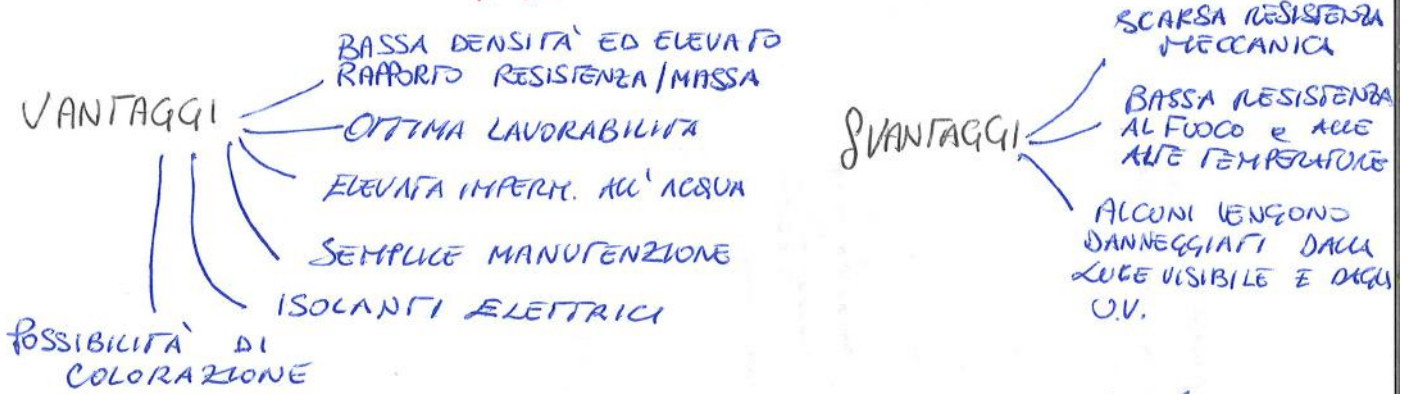 VANTAGGI
BASSA DENSITÀ ED ELEVATO
RAPPORTO RESISTENZA/MASSA
OTTIMA LAVORABILITÀ
ELEVATA IMPERM. ALL'ACQUA
SEMPLICE MANUTENZIONE
ISOLANTI ELETTRICI
POSSIBILITÀ DI
COLORAZIONE
SVANTAGGI
SCARSA RESISTENZA
MECCANICA
BASSA RESISTENZA
AL FUOCO e ALLE
ALTE TEMPERATURE
ALCUNI VENGONO
DANNEGGIATI DALLA
LUCE VISIBILE E DAGLI
U.V.